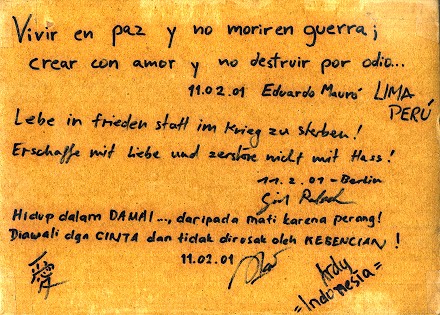 Vivir en paz y no morir en guerra¡
crear con amor y no destruir por odio...
11.02.01 Eduardo Mauró LIMA PERÚ
Lebe in frieden statt im Krieg zu sterben!
Erschaffe mit Liebe und zerstöre nicht mit Hass!
11.2.01 - Berlin
Hidup dalam DAMAI..., daripada mati karena perang!
Diawali dga CINTA dan tidak dirusak oleh KEBENCIAN!
愛
11.02.01
Ardy
=Indonesia=